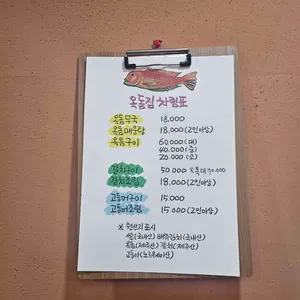 옥돔집 차림표
옥돔무국 18,000
옥돔매운탕 18,000 (2인이상)
옥돔구이 60,000 (대)
40,000 (중)
20,000 (소)
갈치구이 50,000
갈치조림 18,000 (2인이상)
고등어구이 15,000
고등어조림 15,000 (2인이상)
※ 원산지 표시
쌀(국내산) 배추김치(국내산)
옥돔(제주산) 갈치(제주산)
고등어(노르웨이산)